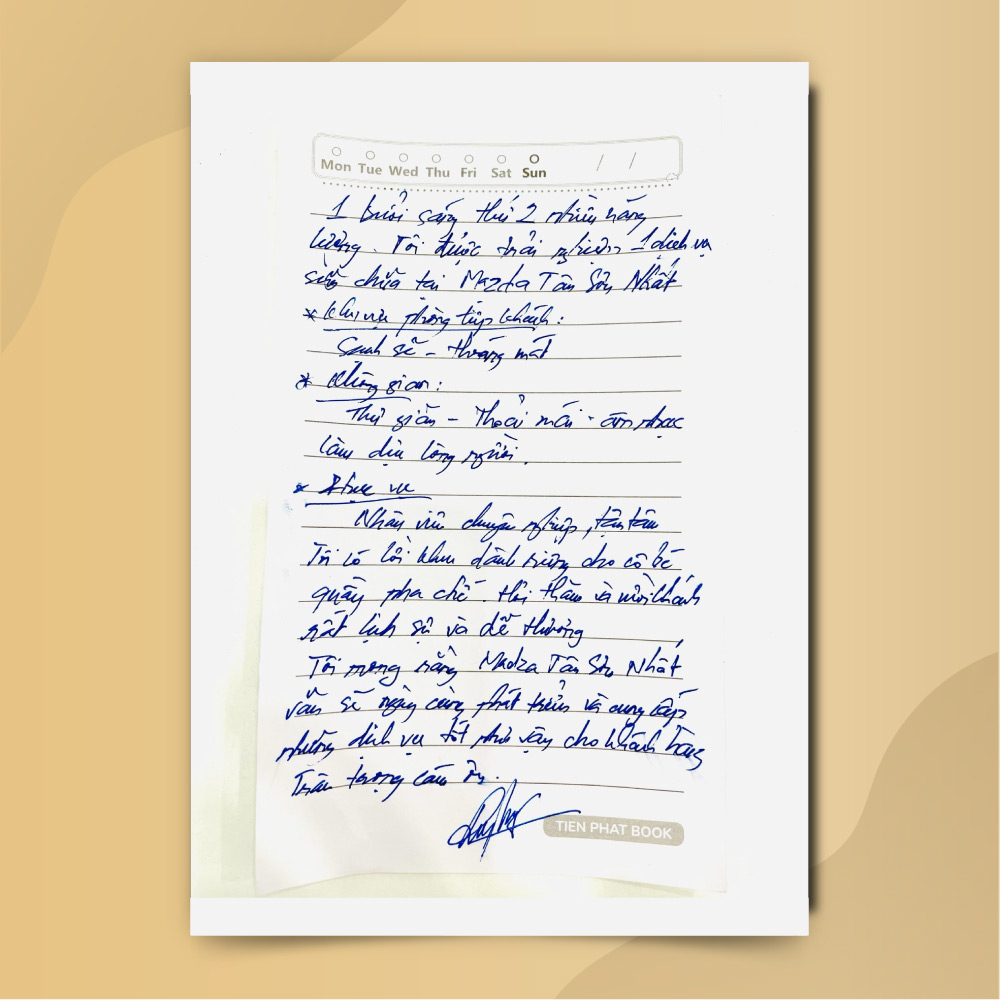 Mon Tue Wed Thu Fri Sat Sun / /
1 buổi sáng thứ 2 nhiều năng
lượng. Tôi được trải nghiệm 1 dịch vụ
sửa chữa tại Mazda Tân Sơn Nhất
* Khu vực phòng tiếp khách:
Sạch sẽ - thoáng mát
* Không gian:
Thư giãn - Thoải mái - âm nhạc
làm dịu lòng người.
* Phục vụ
Nhân viên chuyên nghiệp, tận tâm
Tôi có lời khen dành riêng cho cô bé
quầy pha chế. Hỏi thăm và mời khách
rất lịch sự và dễ thương
Tôi mong rằng Madza Tân Sơn Nhất
vẫn sẽ ngày càng phát triển và cung cấp
những dịch vụ tốt như vậy cho khách hàng
Trân trọng cám ơn.
TIEN PHAT BOOK